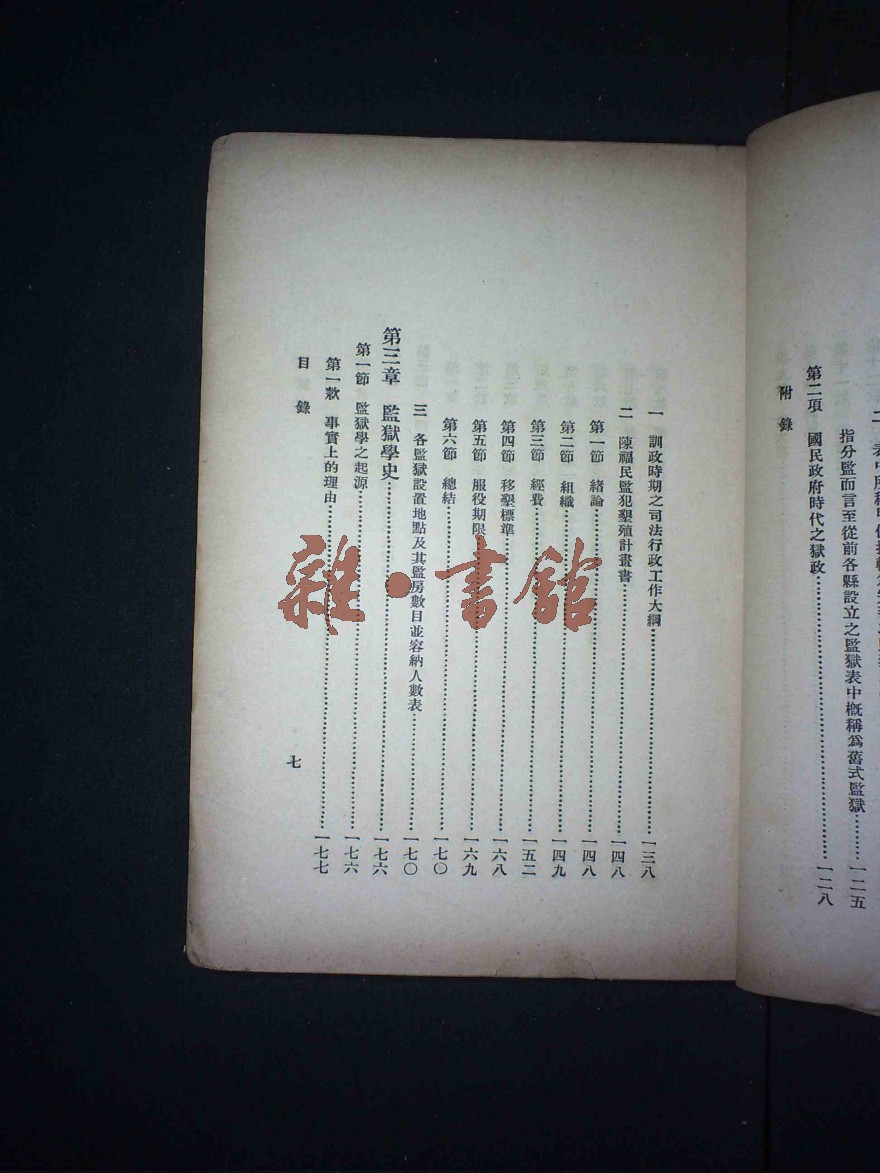 指分監而言至從前各縣設立之監獄表中槪稱爲舊式監獄……一二五
第二項　國民政府時代之獄政……一二八
附錄
一　訓政時期之司法行政工作大綱……一三八
二　陳福民監犯墾殖計畫書……一四八
第一節　緒論……一四八
第二節　組織……一四九
第三節　經費……一五二
第四節　移墾標準……一六八
第五節　服役期限……一六九
第六節　總結……一七〇
三　各監獄設置地點及其監房數目並容納人數表……一七〇
第三章　監獄學史……一七六
第一節　監獄學之起源……一七六
第一款　事實上的理由……一七七
目錄
七
雜·書館